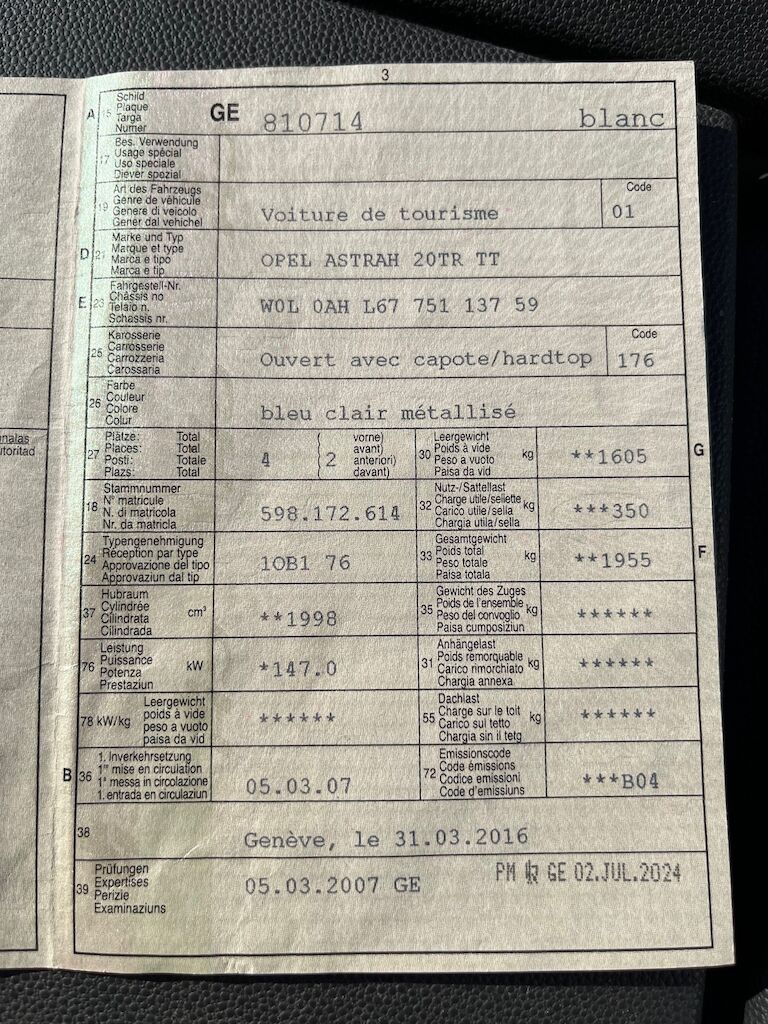 3
A 15 Schild
Plaque
Targa
Numer
GE 810714 blanc
17 Bes. Verwendung
Usage spécial
Uso speciale
Diever spezial
19 Art des Fahrzeugs
Genre de véhicule
Genere di veicolo
Gener dal vehichel
Voiture de tourisme
Code
01
D 21 Marke und Typ
Marque et type
Marca e tipo
Marca e tip
OPEL ASTRAH 20TR TT
E 23 Fahrgestell-Nr.
Châssis no
Telaio n.
Schassis nr.
W0L 0AH L67 751 137 59
25 Karosserie
Carrosserie
Carrozzeria
Carossaria
Ouvert avec capote/hardtop
Code
176
26 Farbe
Couleur
Colore
Colur
bleu clair métallisé
27 Plätze: Total
Places: Total
Posti: Totale
Plazs: Total
4 ( 2 vorne)
avant)
anteriori)
davant)
30 Leergewicht
Poids à vide
Peso a vuoto
Paisa da vid
kg
**1605
G
18 Stammnummer
N° matricule
N. di matricola
Nr. da matricla
598.172.614
32 Nutz-/Sattellast
Charge utile/sellette
Carico utile/sella
Chargia utila/sella
kg
***350
24 Typengenehmigung
Réception par type
Approvazione del tipo
Approvaziun dal tip
1OB1 76
33 Gesamtgewicht
Poids total
Peso totale
Paisa totala
kg
**1955
F
37 Hubraum
Cylindrée
Cilindrata
Cilindrada
cm³
**1998
35 Gewicht des Zuges
Poids de l'ensemble
Peso del convoglio
Paisa cumposiziun
kg
******
76 Leistung
Puissance
Potenza
Prestaziun
kW
*147.0
31 Anhängelast
Poids remorquable
Carico rimorchiato
Chargia annexa
kg
******
78 kW/kg Leergewicht
poids à vide
peso a vuoto
paisa da vid
******
55 Dachlast
Charge sur le toit
Carico sul tetto
Chargia sin il tetg
kg
******
B 36 1. Inverkehrsetzung
1re mise en circulation
1a messa in circolazione
1. entrada en circulaziun
05.03.07
72 Emissionscode
Code émissions
Codice emissioni
Code d'emissiuns
***B04
38 Genève, le 31.03.2016
39 Prüfungen
Expertises
Perizie
Examinaziuns
05.03.2007 GE
PM GE 02.JUL.2024